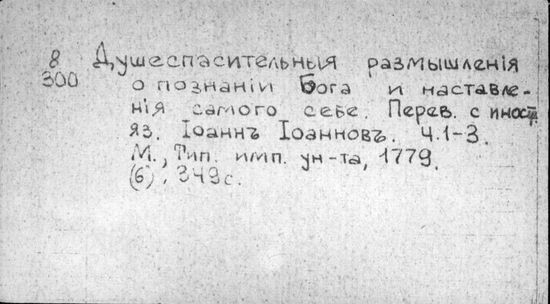 8 Душеспасительныя размышленія
300 о познаніи Бога и наставле-
нія самого себе. Перев. с иност.
яз. Іоаннъ Іоанновъ. Ч.1-3.
М., Тип. имп. ун-та, 1779.
(6), 349с.